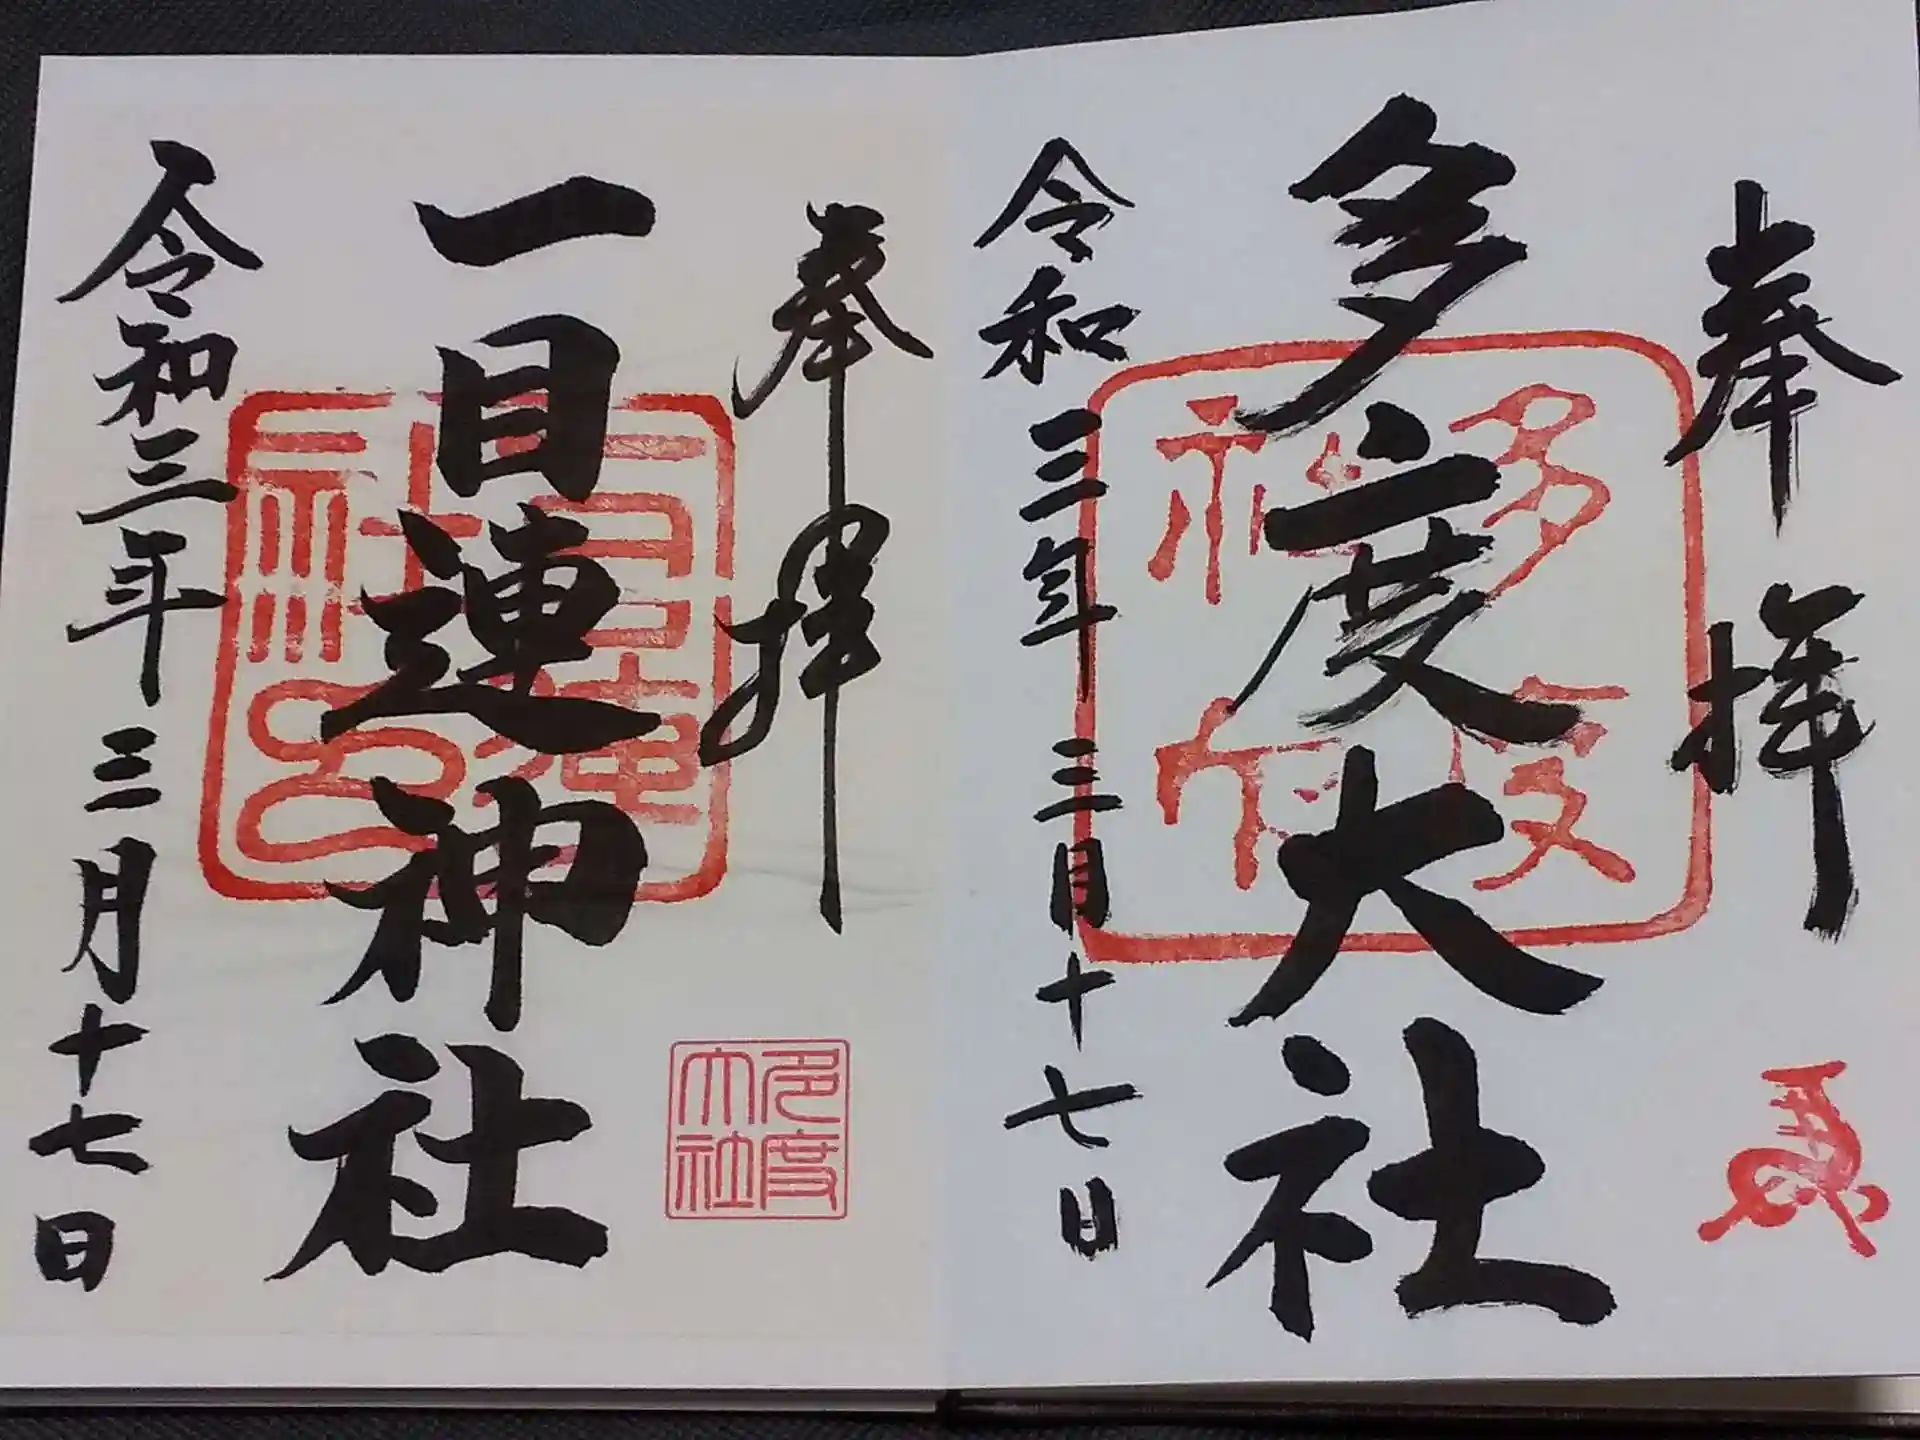 奉拝
多度大社
令和三年三月十七日
奉拝
一目連神社
令和三年三月十七日
多度
大社